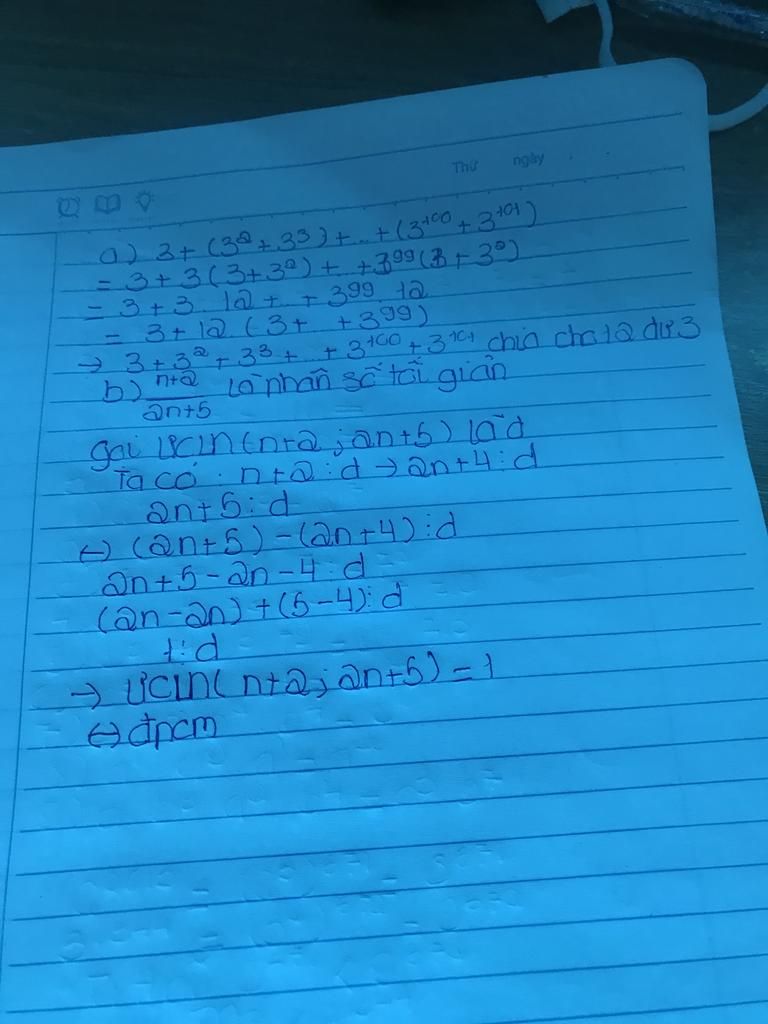 Thứ ngày
a) 3 + (3² + 3³) + .. + (3¹⁰⁰ + 3¹⁰¹)
= 3 + 3(3 + 3²) + .. + 3⁹⁹(3 + 3²)
= 3 + 3 . 12 + .. + 3⁹⁹ . 12
= 3 + 12 (3 + .. + 3⁹⁹)
→ 3 + 3² + 3³ + .. + 3¹⁰⁰ + 3¹⁰¹ chia cho 12 dư 3
b) n+2/2n+5 là phân số tối giản
gọi ƯCLN(n+2; 2n+5) là d
Ta có: n+2 ⋮ d → 2n+4 ⋮ d
2n+5 ⋮ d
↔ (2n+5) - (2n+4) ⋮ d
2n+5 - 2n - 4 ⋮ d
(2n - 2n) + (5 - 4) ⋮ d
1 ⋮ d
→ ƯCLN(n+2; 2n+5) = 1
↔ đpcm